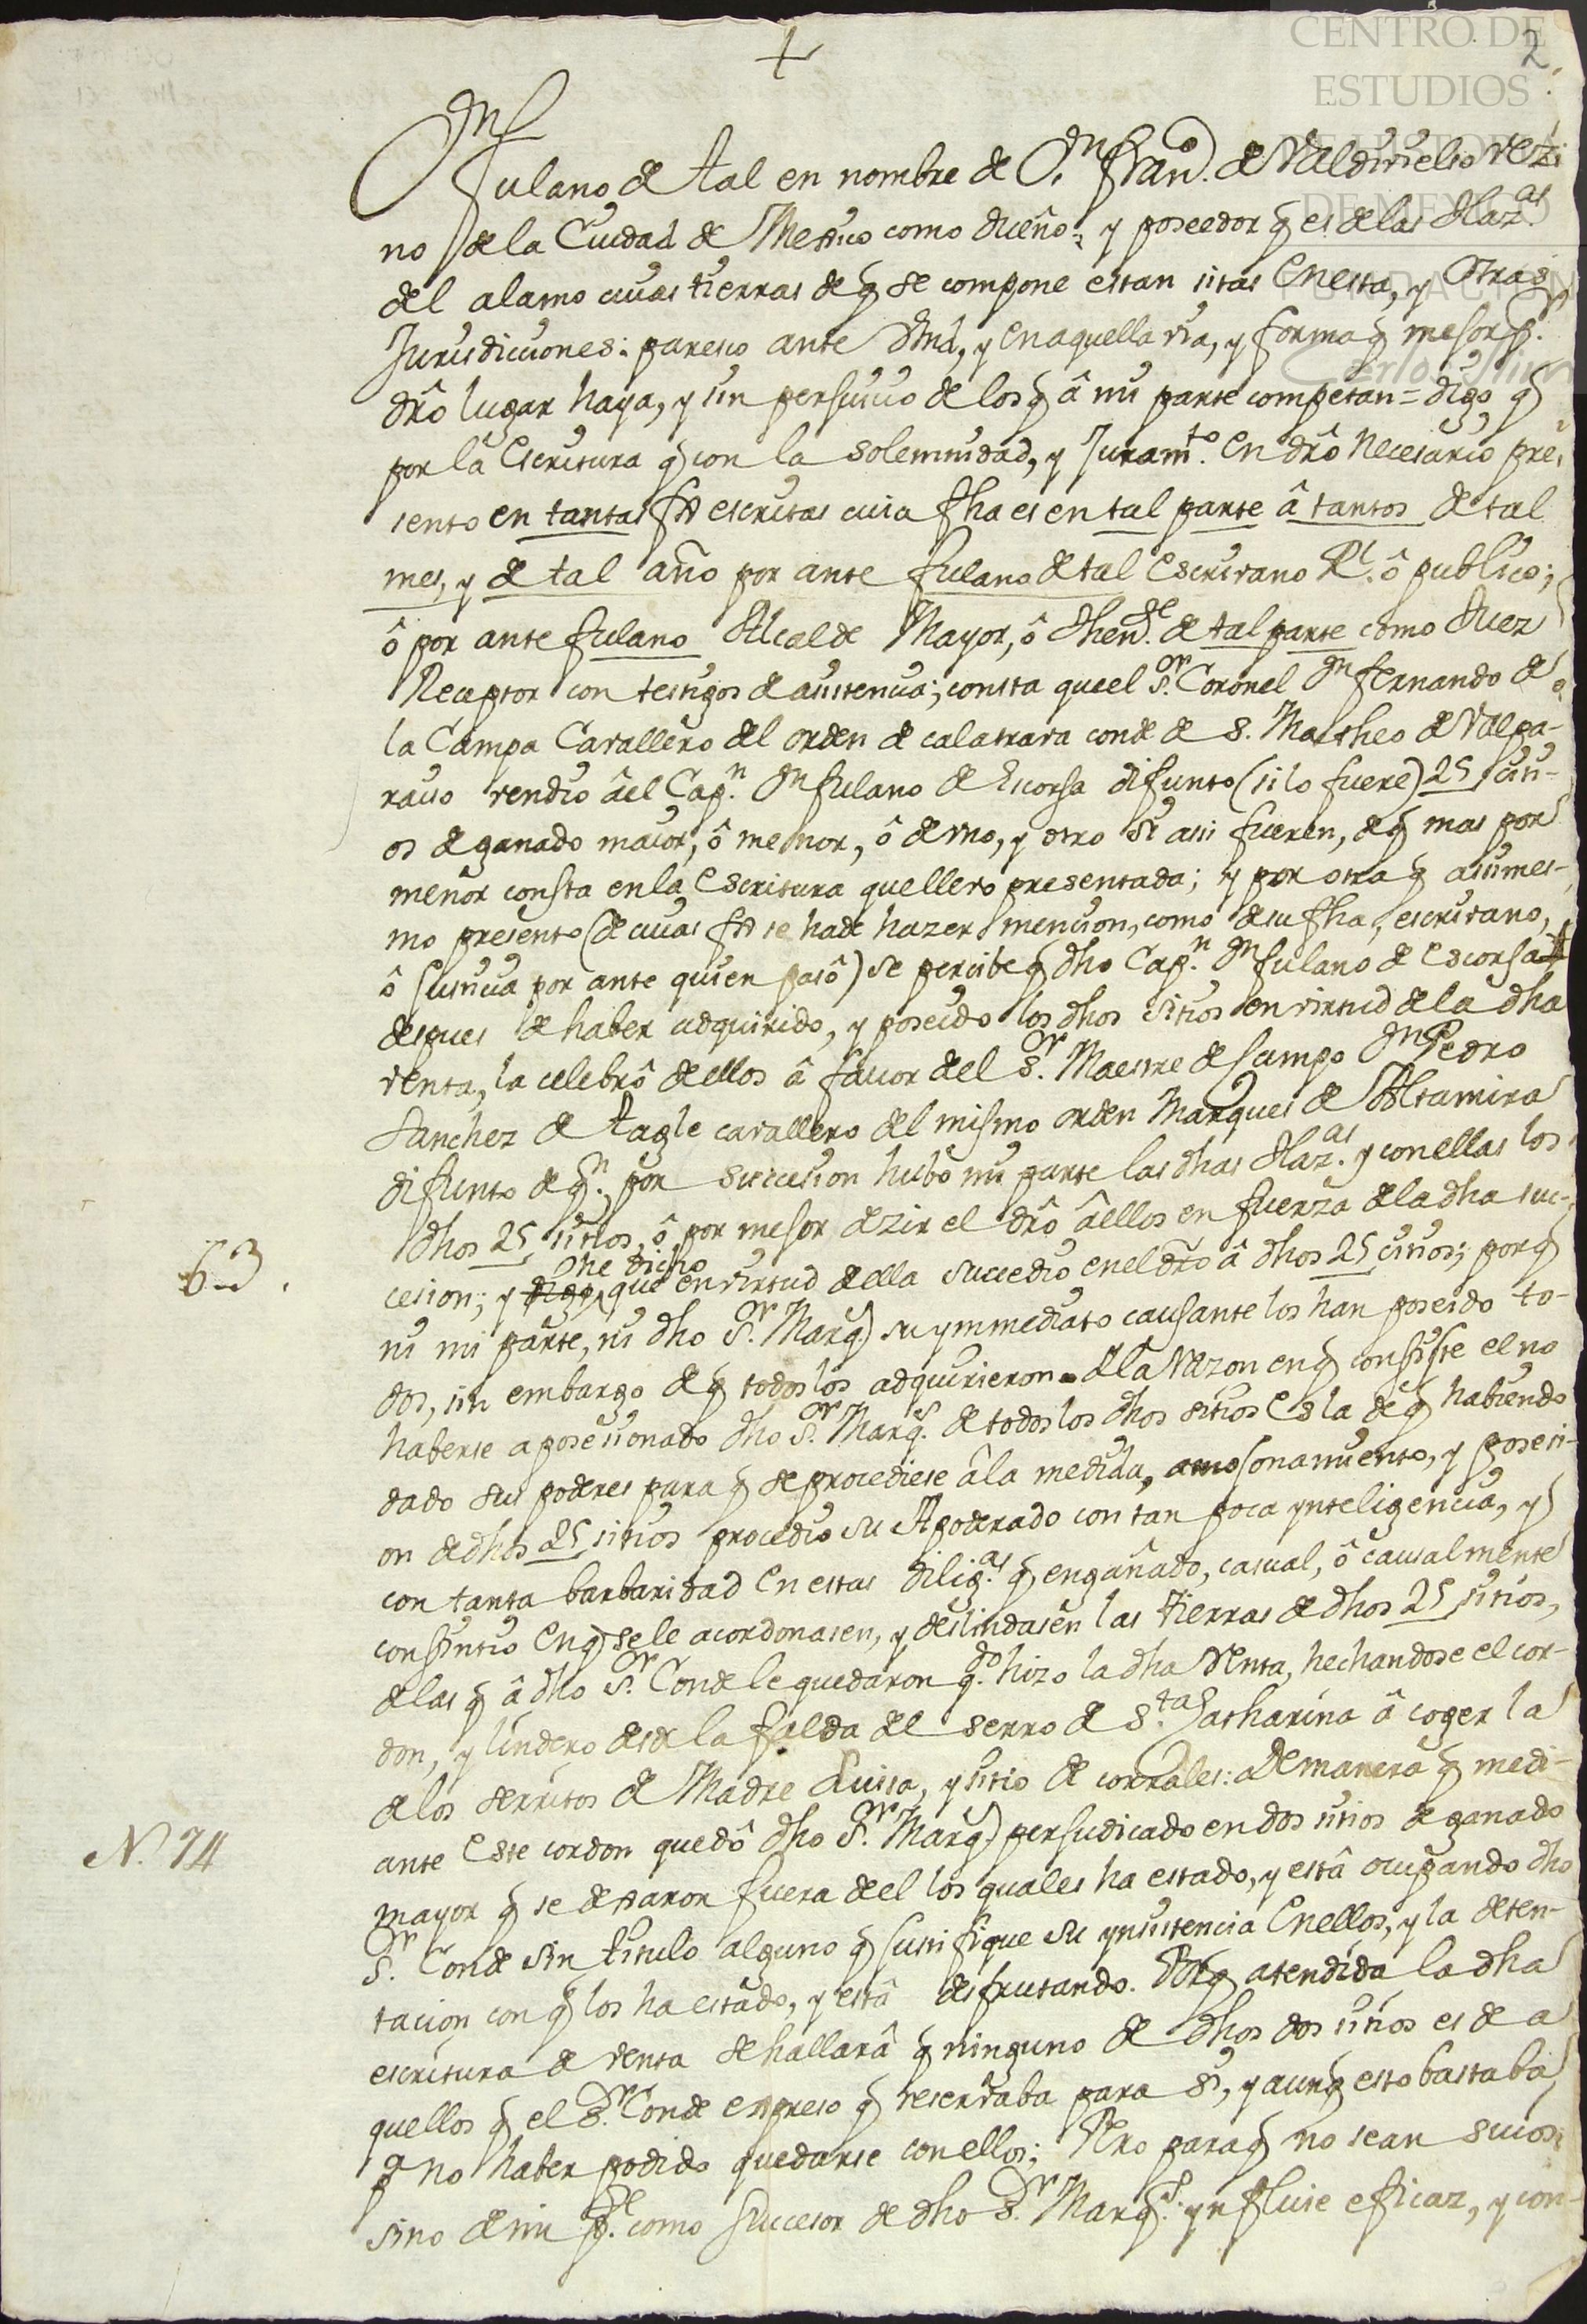 CENTRO DE
ESTUDIOS
DE MEXICO
FUNDACION
Carlos Slim
2
Dn
fulano de tal en nombre de Dn. Franco. de Valdivielso vezi
no de la Ciudad de Mexico como dueño, y poseedor q es de las Hazas.
del alamo cuias tierras de q se compone estan sitas en esta, y otras
Jurisdicciones: paresco ante Vmd, y en aquella via, y forma q mejor pr.
drô lugar haya, y sin perjuicio de los q â mi parte competan = digo q
por la Escritura q con la solemnidad, y Juramto. en drô necesario pre
sento en tantas fxs escritas cuia fha es en tal parte â tantos de tal
mes, y de tal año por ante fulano de tal Escrivano Rl. ô publico;
ô por ante fulano Alcalde Mayor, ô Thente. de tal parte como Juez
Receptor con testigos de asistencia; consta que el Sor. Coronel Dn fernando de
la Campa Cavallero del orden de calatrava conde de S. Matheo de Valpa-
raiso vendio âel Capn. Dn fulano de Escorsa difunto (si lo fuere) 25 siti-
os de ganado maior, ô menor, ô de uno, y otro si assi fueren, de q mas por
menor consta en la Escritura que llevo presentada; y por otra q asimes-
mo presento (de cuias fxs se hade hazer mencion, como de su fha, escrivano,
ô Justicia por ante quien pasô) se percibe q dho Capn. Dn fulano de Escorsa
despues de haber adquirido, y poseido los dhos sitios en virtud de la dha
venta, la celebrô de ellos â favor del Sor. Maestre de Campo Dn Pedro
Sanchez de Tagle cavallero del mismo orden Marques de Altamira
difunto de qn. por succesion hubo mi parte las dhas Hazas. y con ellas los
dhos 25 sitios, ô por mejor dezir el drô âellos en fuerza de la dha suc-
63.
cesion; y digo he dicho que en virtud de ella succedio en el drô â dhos 25 sitios; porq
ni mi parte, ni dho Sor. Marqs. su ymmediato causante los han poseido to-
dos, sin embargo de q todos los adquirieron. La razon en q consiste el no
haberse aposesionado dho Sor. Marqs. de todos los dhos sitios es la de q habiendo
dado sus poderes para q se procediese â la medida, amojonamiento, y posesi-
on de dhos 25 sitios procedio su Apoderado con tan poca ynteligencia, y
con tanta barbaridad en estas diligas. q engañado, casual, ô causalmente
consintio en q se le acordonasen, y deslindasen las tierras de dhos 25 sitios,
de las q â dho Sor. Conde le quedaron qdo. hizo la dha venta, hechandose el cor-
don, y lindero desde la falda del serro de Sta Catharina â coger la
de los serritos de Madre Luisa, y sitio de corrales: de manera q medi-
N. 74
ante este cordon quedô dho Sor. Marqs. perjudicado en dos sitios de ganado
mayor q se dexaron fuera del los quales ha estado, y estâ ocupando dho
Sor. Conde sin titulo alguno q justifique su ynsistencia en ellos, y la deten-
tacion con q los ha estado, y estâ disfrutando. Porq atendida la dha
escritura de venta se hallarâ q ninguno de dhos dos sitios es de a
quellos q el Sor. Conde expreso q reservaba para sî, y aunq esto bastaba
pa no haber podido quedarse con ellos; Pero para q no sean suios,
sino de mi pte. como succesor de dho Sor. Marqs. ynfluie eficaz, y con-